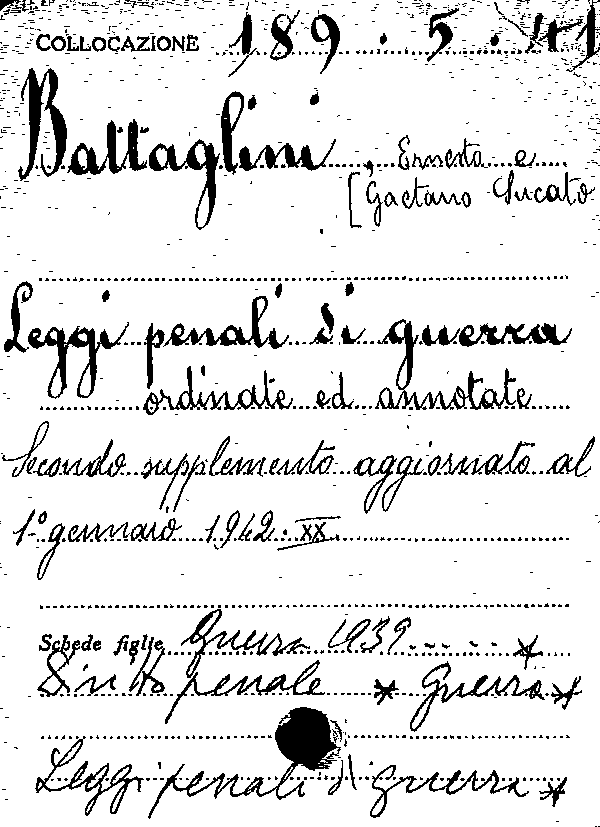 COLLOCAZIONE 189.5.41
Battaglini, Ernesto e
[Gaetano Sucato
Leggi penali di guerra
ordinate ed annotate
Secondo supplemento aggiornato al
1° gennaio 1942. XX.
Schede figlie Guerra 1939..... *
Diritto penale * Guerra *
Leggi penali di guerra *